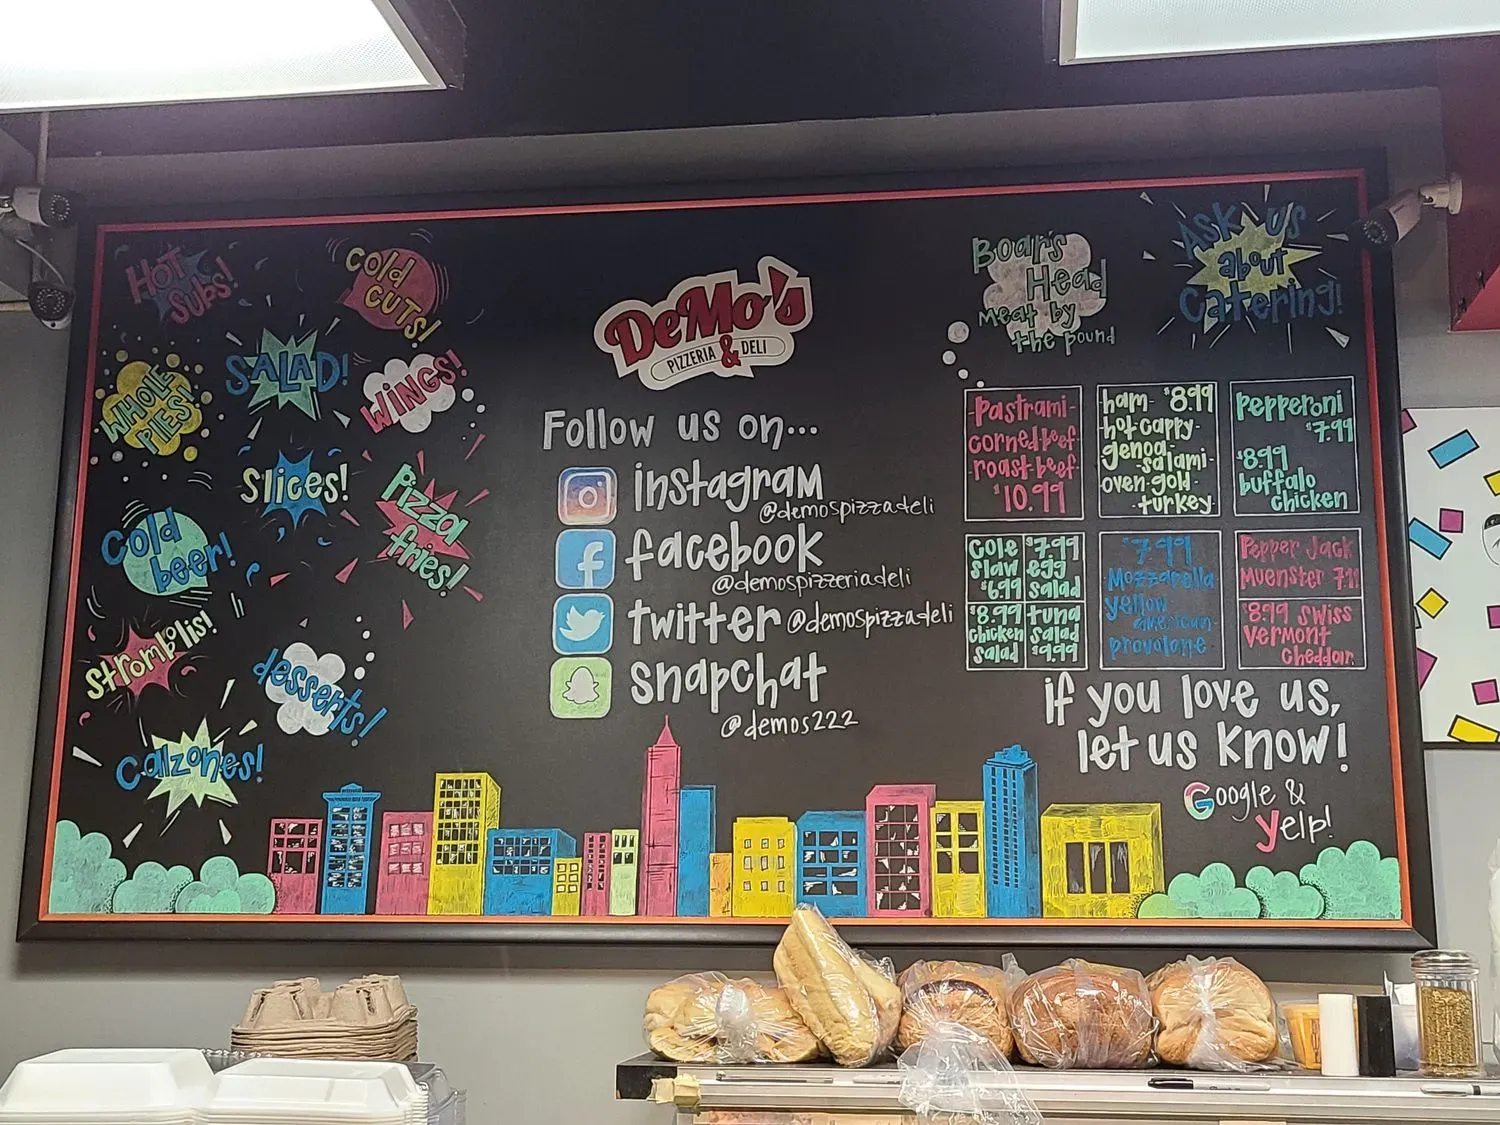 HOT
SUBS!
Cold
CUTS!
SALAD!
WHOLE
PIES!
WINGS!
SLICES!
Pizza
fries!
Cold
beer!
Strombolis!
desserts!
Calzones!
DeMo's
PIZZERIA & DELI
Follow us on...
instagram
@demospizzadeli
facebook
@demospizzeriadeli
twitter @demospizzadeli
snapchat
@demos222
Boar's
Head
Meat by
the pound
ASK US
about
Catering!
pastrami-
corned beef-
roast beef-
$10.99
ham- $8.99
hot cappy-
genoa
salami-
oven gold-
turkey
Pepperoni
$7.99
$8.99
buffalo
chicken
Cole
slaw
$6.99
$7.99
egg
salad
$8.99
chicken
salad
tuna
salad
$9.99
$7.99
Mozzarella
yellow
american-
provolone
Pepper Jack
Muenster
$8.99 Swiss
Vermont
Cheddar
if you love us,
let us know!
Google &
Yelp!